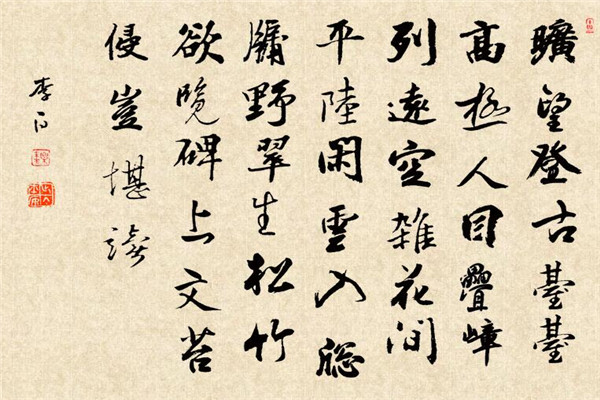 曠望登古臺臺
高極人目疊嶂
列遠空雜花間
平陸閑雲入牕
牖野翠生松竹
欲覽碑上文苔
侵豈堪讀
李白